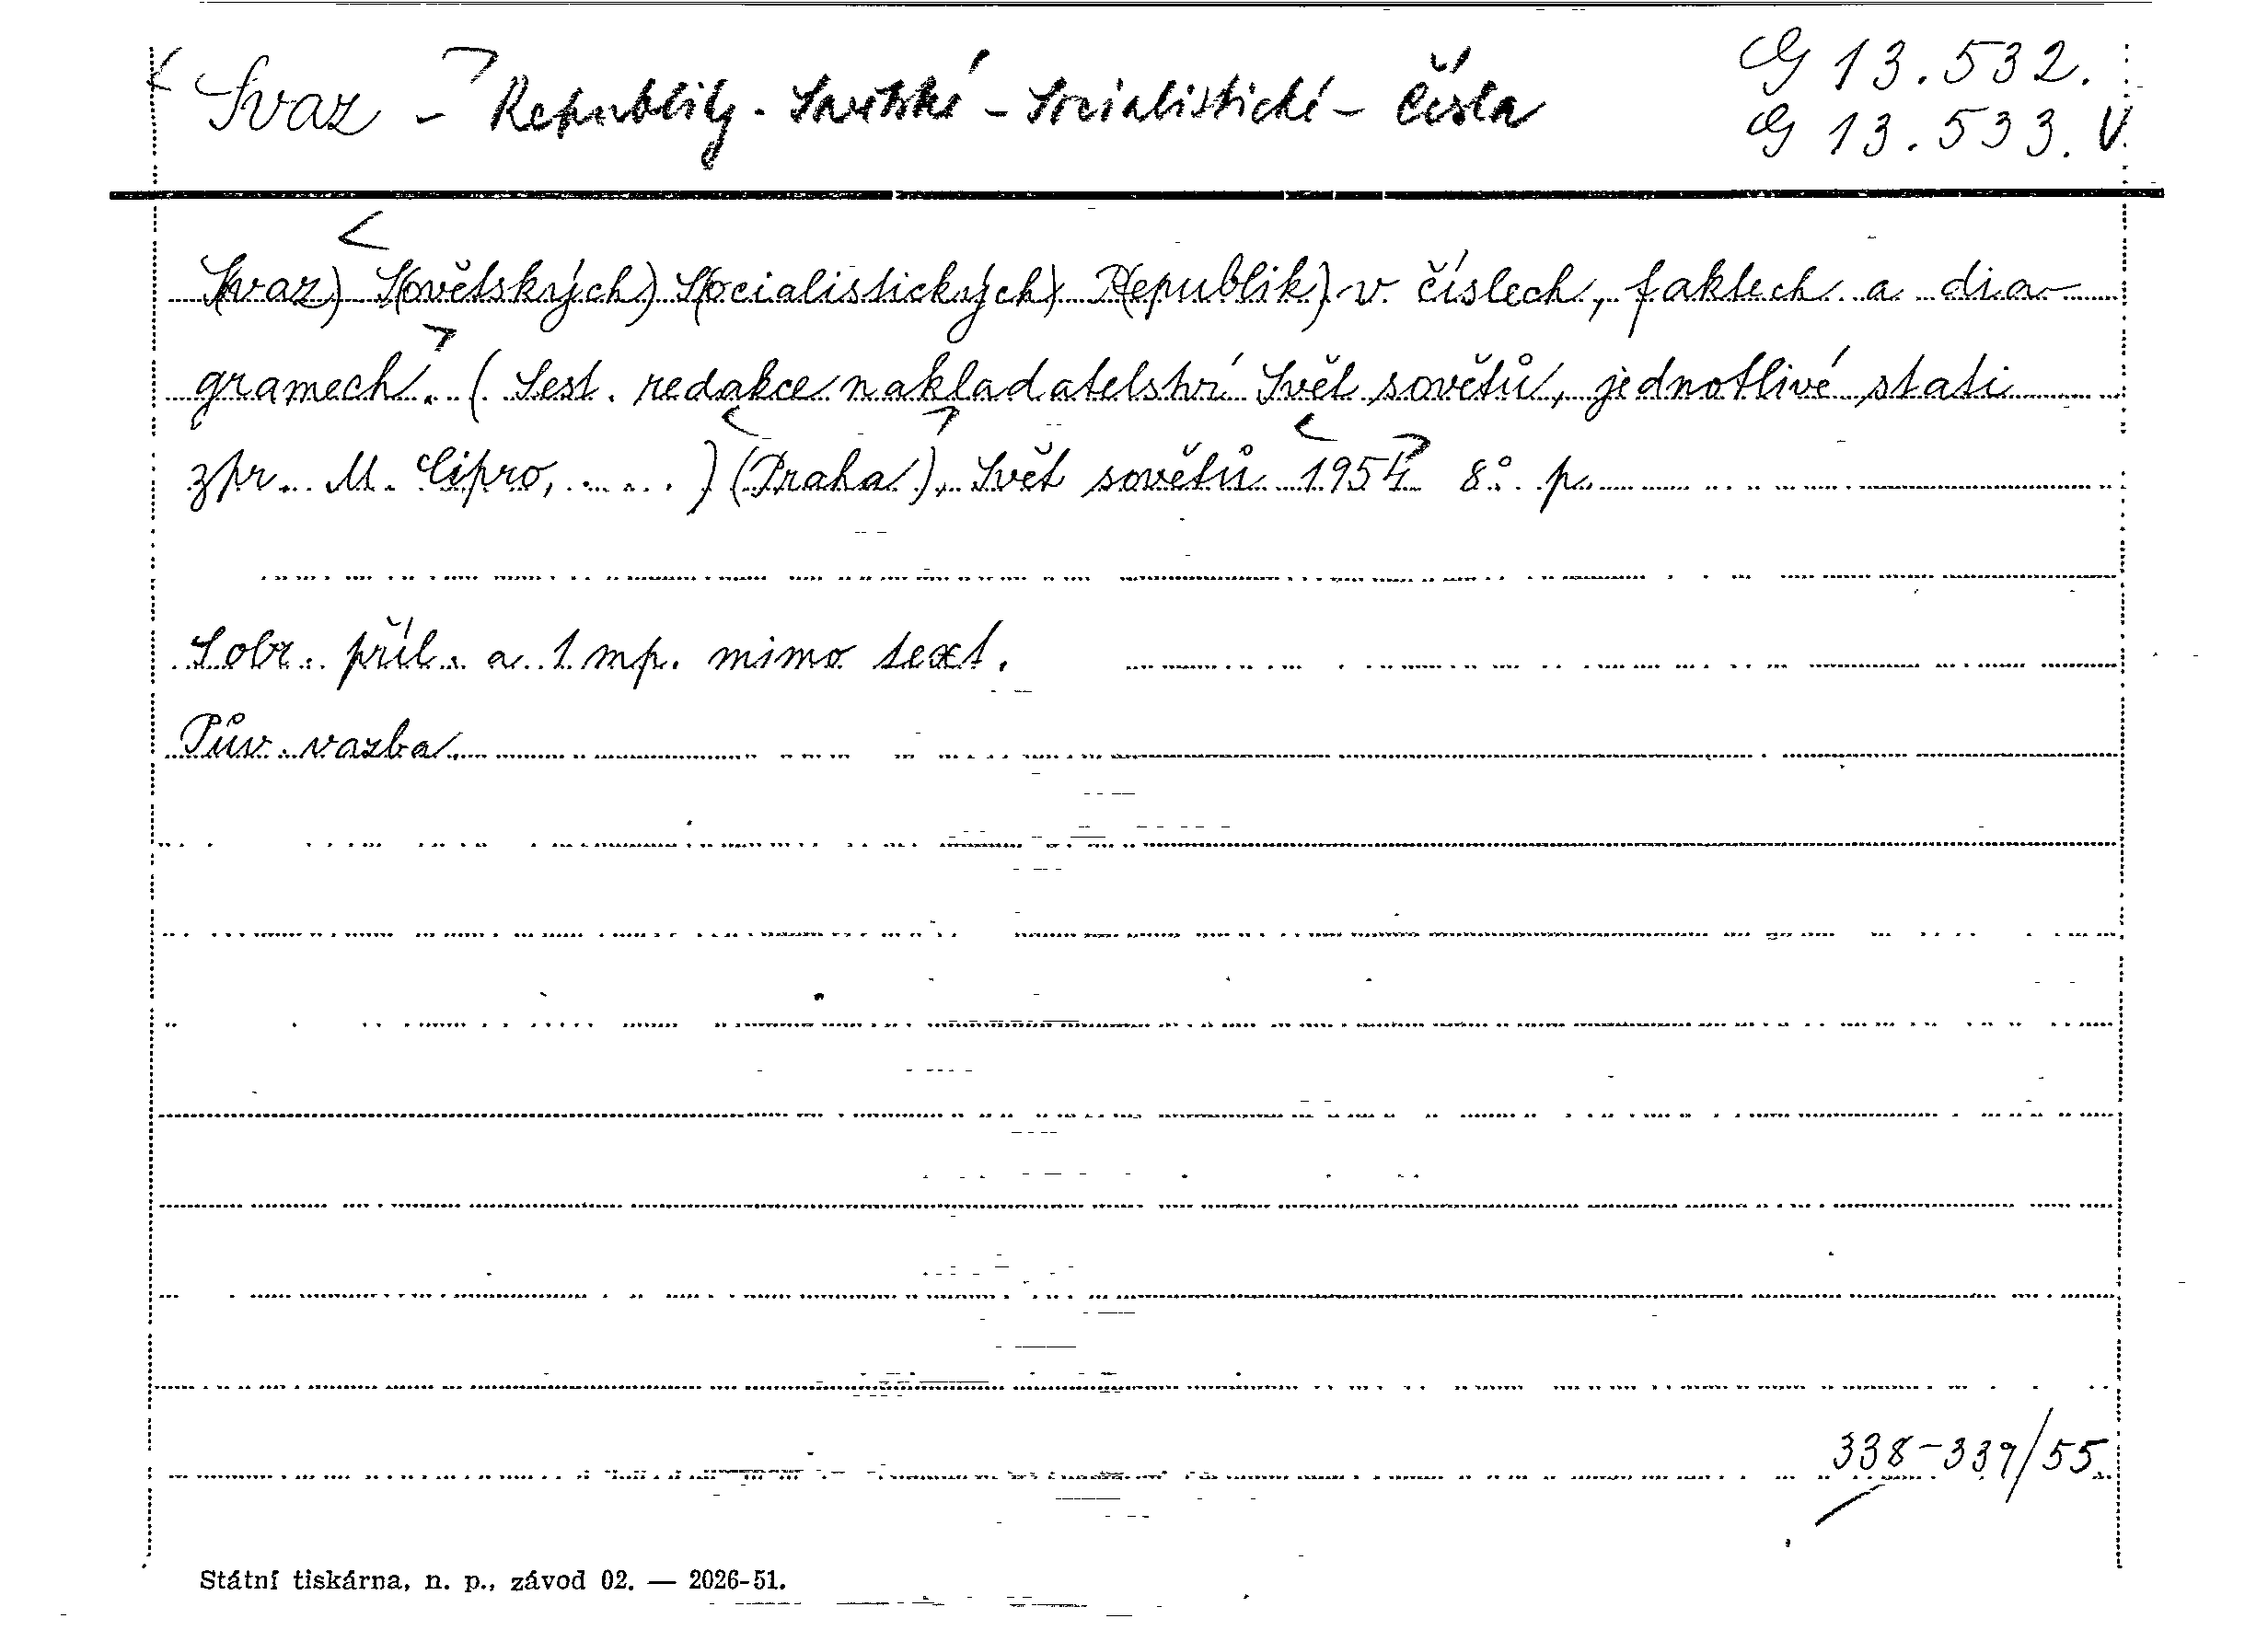 Svaz - Republiky - Sovětské - Socialistické - Čísla
G 13.532.
G 13.533. V.
S(vaz) S(ovětských) S(ocialistických) R(epublik) v číslech, faktech a dia-
gramech. (Sest. redakce nakladatelství Svět sovětů, jednotlivé stati
zpr. M. Cipro, .....) (Praha), Svět sovětů 1954 8° p.
S obr. příl. a 1 mp. mimo text.
Pův. vazba.
338-339/55.
Státní tiskárna, n. p., závod 02. — 2026-51.